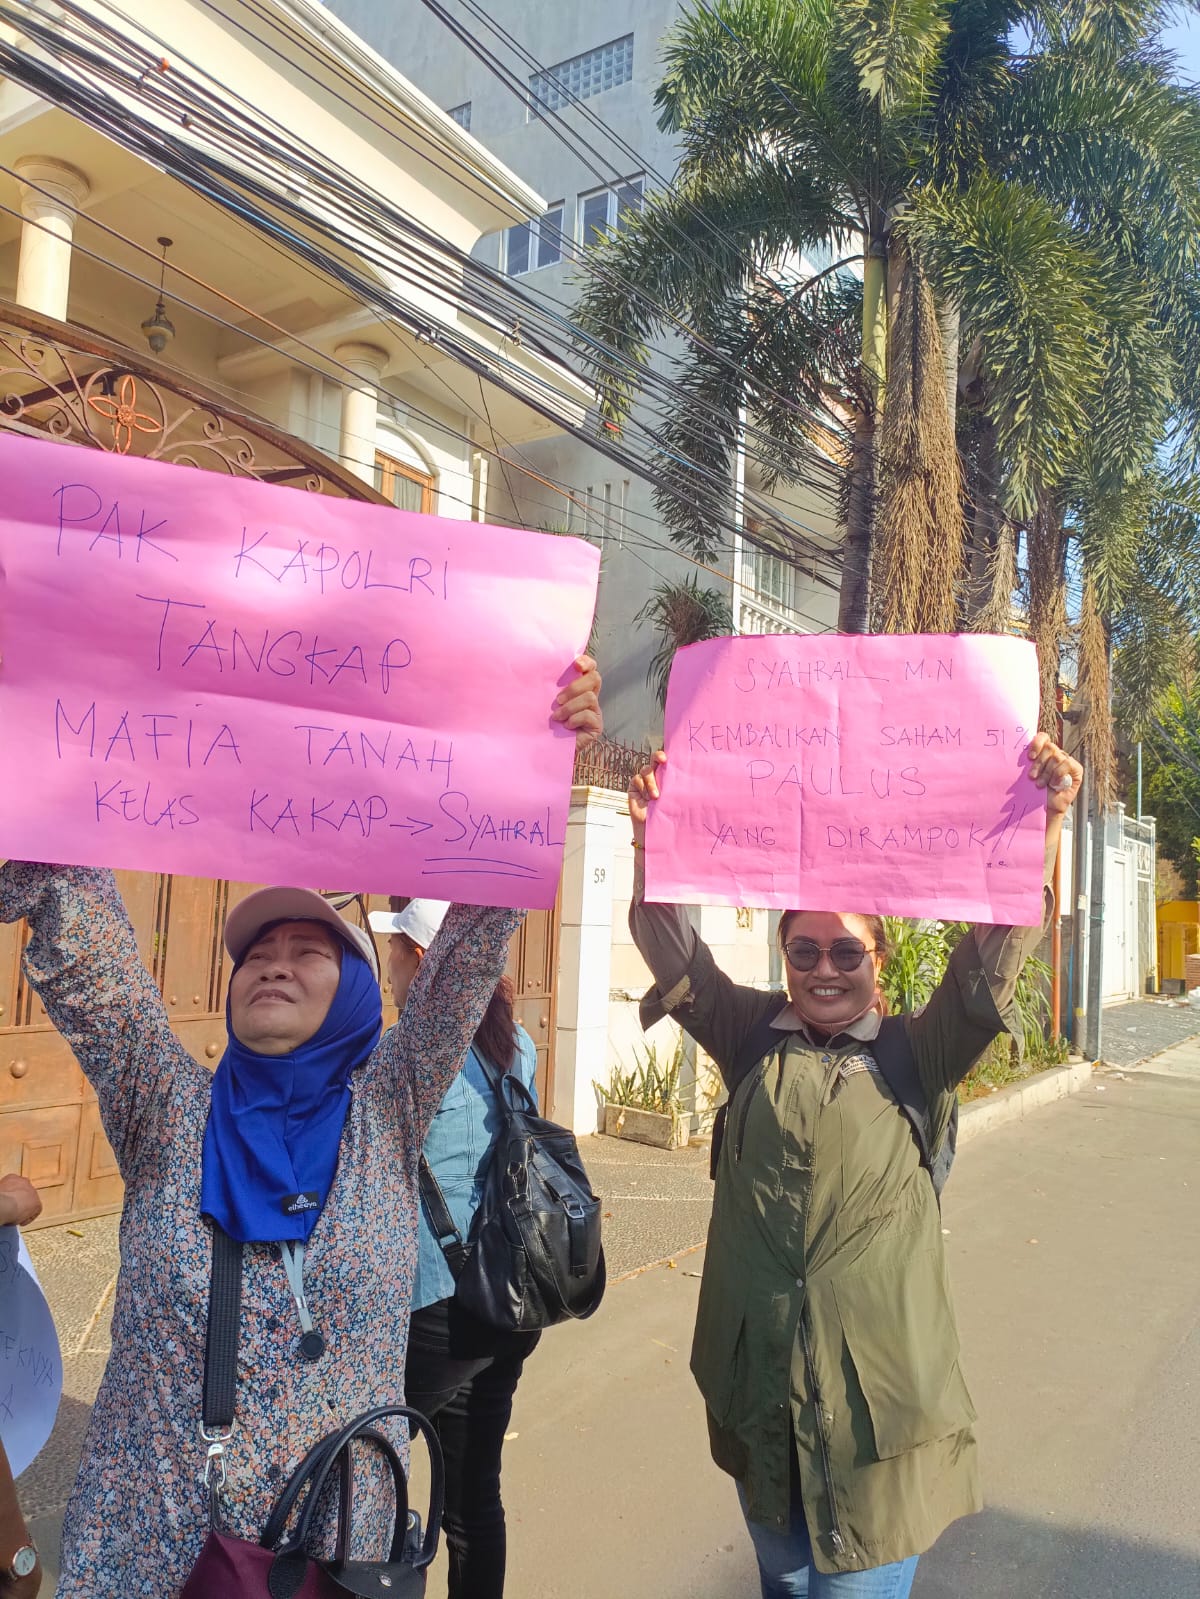 PAK KAPOLRI
TANGKAP
MAFIA TANAH
KELAS KAKAP → SYAHRAL
SYAHRAL M.N
KEMBALIKAN SAHAM 51%
PAULUS
YANG DIRAMPOK!!
59
elheeya